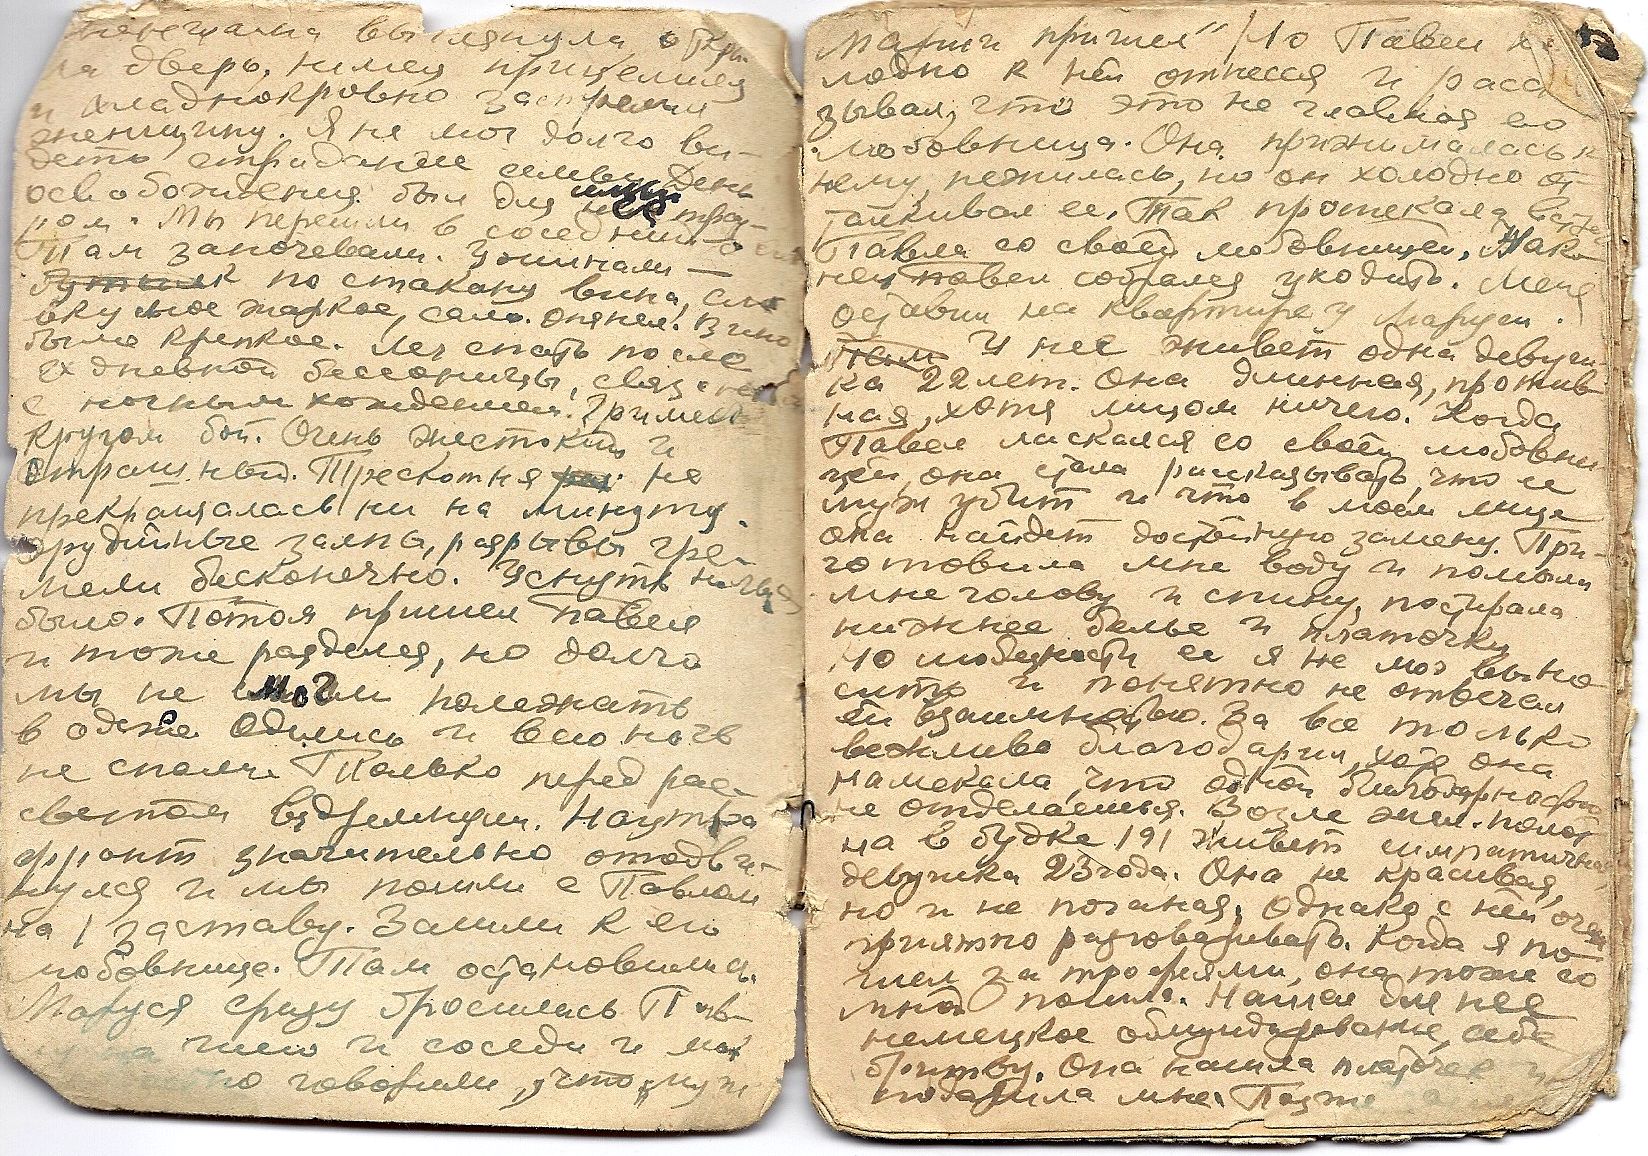 нечаянно выглянула, откры-
ла дверь, немец прицелился
и хладнокровно застрелил
женщину. Я не мог долго ви-
деть страдание семьи. День
освобождения был для нее тра-
ром. Мы перешли в соседний
Там заночевали. Ужинали —
по стакану вина,
вкусное жаркое, сало. Опянел. Вино
было крепкое. Лег спать после
дневной бессоницы,
с ночным хождением. Гримел
кругом бой. Очень жестокий и
страшный. Трескотня не
прекращалась ни на минуту.
Орудийные залпы, разрывы гре-
мели бесконечно. Уснуть нельзя
было. Потом пришел Павел
и тоже разделся, но долго
мы не могли полежать
в одежде. Оделись и всю ночь
не спали. Только перед рас-
светом вздремнули. Наутро
фронт значительно отодви-
нулся и мы пошли с Павлом
на 1 заставу. Зашли к его
любовнице. Там остановились.
Маруся сразу бросилась Пав-
на шею и соседи и
говорили, что „муж
Маруси пришел“. Но Павел хо-
лодно к ней отнесся и расска-
зывал, что это не главная его
любовница. Она прижималась к
нему, нежилась, но он холодно от-
талкивал ее. Так протекала встреча
Павла со своей любовницей. Нако-
нец Павел собрался уходить. Меня
оставил на квартире у Маруси.
У нее живет одна девуш-
ка 22 лет. Она длинная, против-
ная, хотя лицом ничего. Когда
Павел ласкался со своей любовни-
цей, она стала рассказывать, что ее
муж убит и что в моем лице
она найдет достойную замену. При-
готовила мне воду и помыла
мне голову и спину, постирала
нижнее белье и платочки
Но любезности ее я не мог выно-
сить и понятно не отвечал
ей взаимностью. За все только
вежливо благодарил, хотя она
намекала, что одной благодарностью
не отделаешься. Возле жел. полот-
на в будке 191 живет симпатичная
девушка 23 года. Она не красивая,
но и не поганая, однако с ней очень
приятно разговаривать. Когда я по-
шел за трофеями, она тоже со
мной пошла. Нашел для нее
немецкое обмундирование, себе
бритву. Она нашла платочек и
подарила мне. Позже